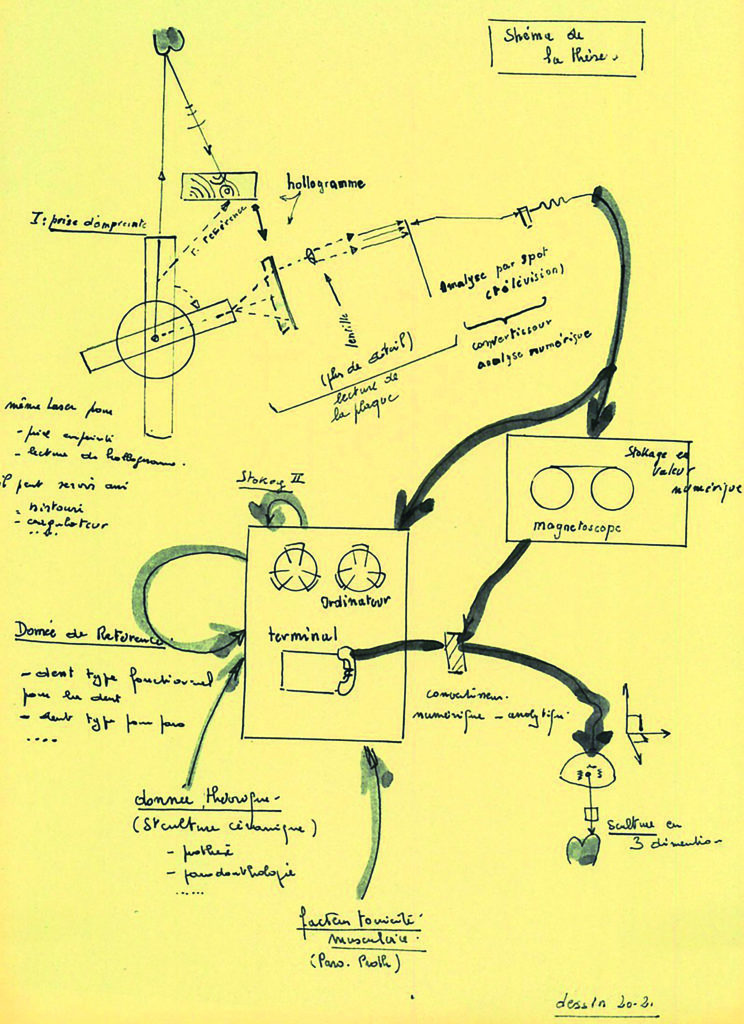 Shéma de
la thèse.
hollogramme
I: prise d'empreinte
r. référence
lentille
Analyse par spot
(télévision)
convertisseur
analyse numérique
(plus de détail)
lecture de
la plaque
même laser pour
- prise empreinte
- lecture de hollogramme.
il peut servir aussi
- bistouri
- coagulateur
.....
Stokage en
valeur
numérique
magnetoscope
Stokage II
Ordinateur
terminal
Donnée de Référence.
- dent type fonctionnel
pour les dent
- dent type pour paro
....
convertisseur.
numérique - analytique.
donnee théorique -
(Structure céramique)
- prothèse
- parodonthologie
......
Sculture en
3 dimention
facteur tonicité
musculaire.
(Paro. Proth)
dessin 20-2.